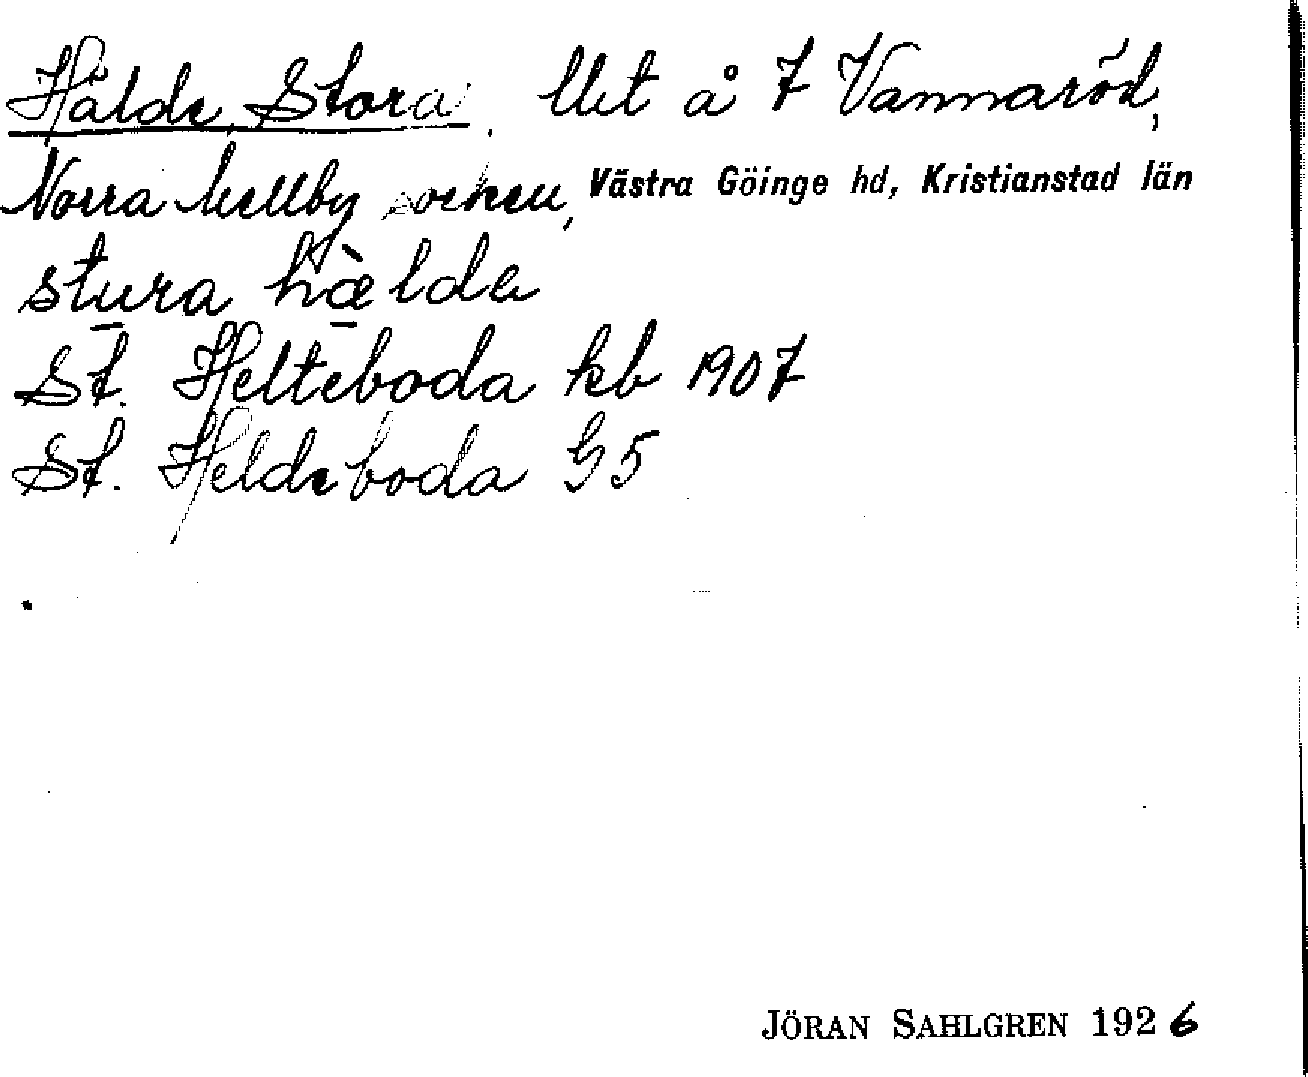 Hälde, Stora, llet å 7 Vannaröd,
Norra Mellby socken, Västra Göinge hd, Kristianstad län
stura hælde
St. Helteboda kb 1907
St. Heldeboda G5
JÖRAN SAHLGREN 1926